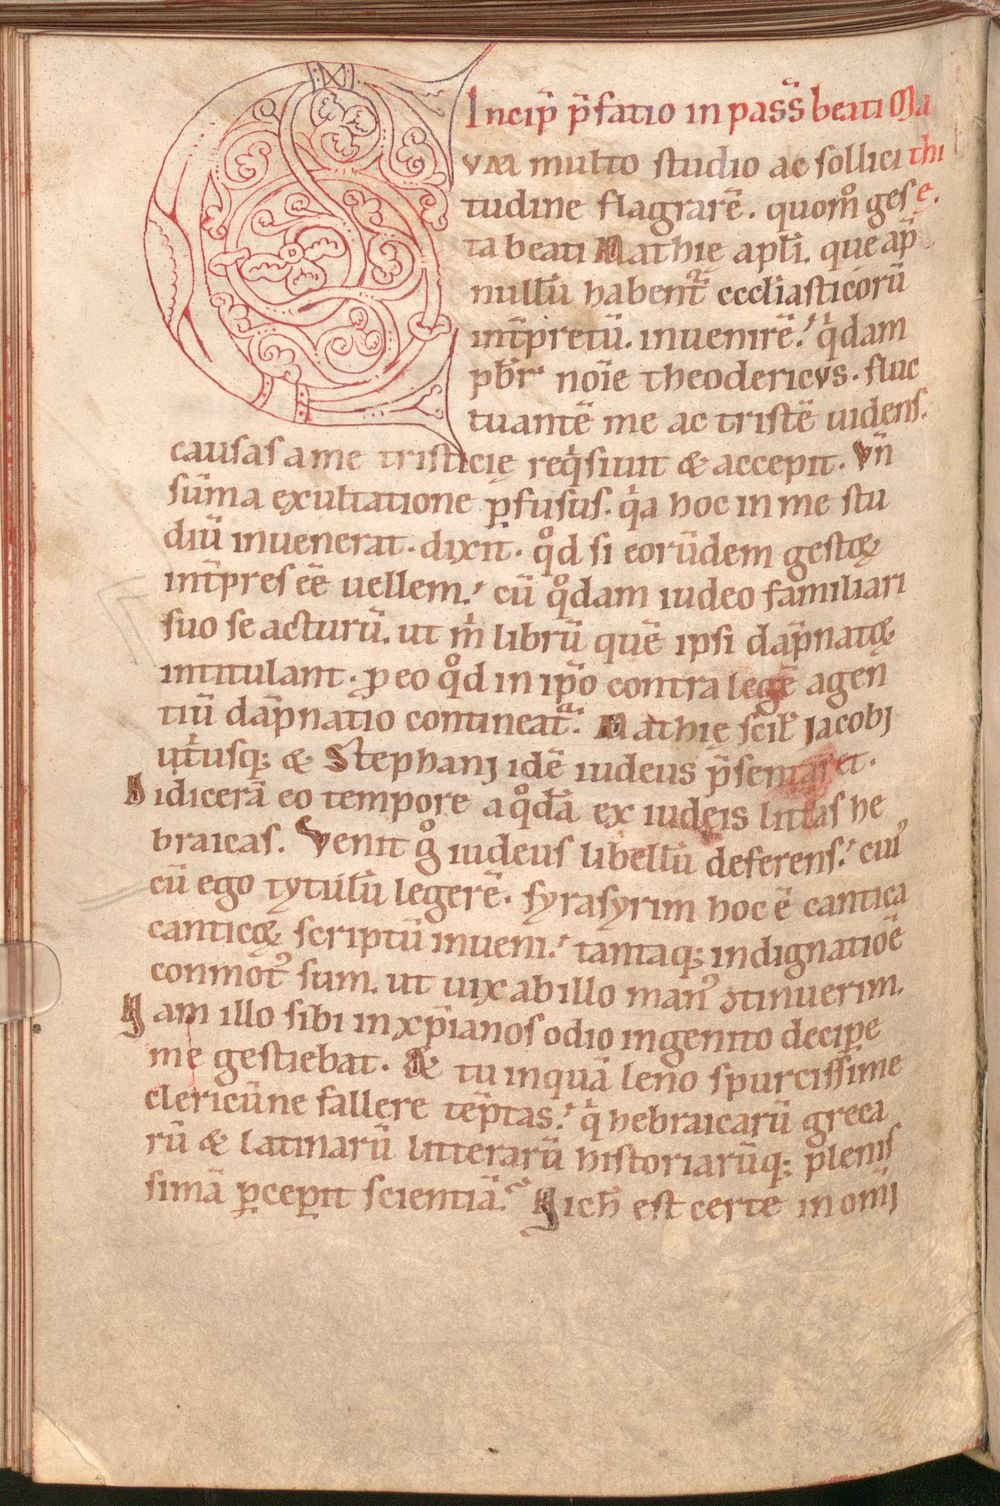 Incip̄ p̄fatio in pass̄ beati Ma
Vm multo studio ac sollici thi
tudine flagrarē. quom̊ ges ę.
ta beati Mathię apłi. que ap̄
nullū habent᷑ eccłiasticorū
int̄pretū. inuenirē. q̇dam
pb̄r noīe theodericus. fluc
tuantē me ac tristē uidens.
causas a me tristicię req̇siuit & accepit. Vn̄
sūma exultatione ꝑfusus. q̇a hoc in me stu
diū inuenerat. dixit. qͦd si eorūdem gestoꝝ
int̄pres eē uellem. cū qͦdam iudeo familiari
suo se acturū. ut ṁ librū quē ipsi dāpnatoꝝ
intitulant. ꝓ eo qͦd in ip̄o contra legē agen
tiū dāpnatio contineat᷑. Mathię scił Jacobj
ut̄usq; & Stephanj idē iudeus p̄sentaret.
Didicerā eo tempore a qͦdā ex iudeis litt̄as he
braicas. Venit gͦ iudeus libellū deferens. cui᷒
cū ego tytulū legerē. syrasyrim hoc ē cantica
canticoꝝ scriptū inueni. tantaq; indignatiōe
conmot᷒ sum. ut uix ab illo man᷒ ꝯtinuerim.
Nam illo sibi in xp̄ianos odio ingenito decipe
me gestiebat. At tu inquā leno spurcissīme
clericūne fallere tēptas. q̇ hebraicarū greca
rū & latinarū litterarū historiarūq; plenis
simā ꝑceꝑit scientiā. Nich̄ est certe in om̄j